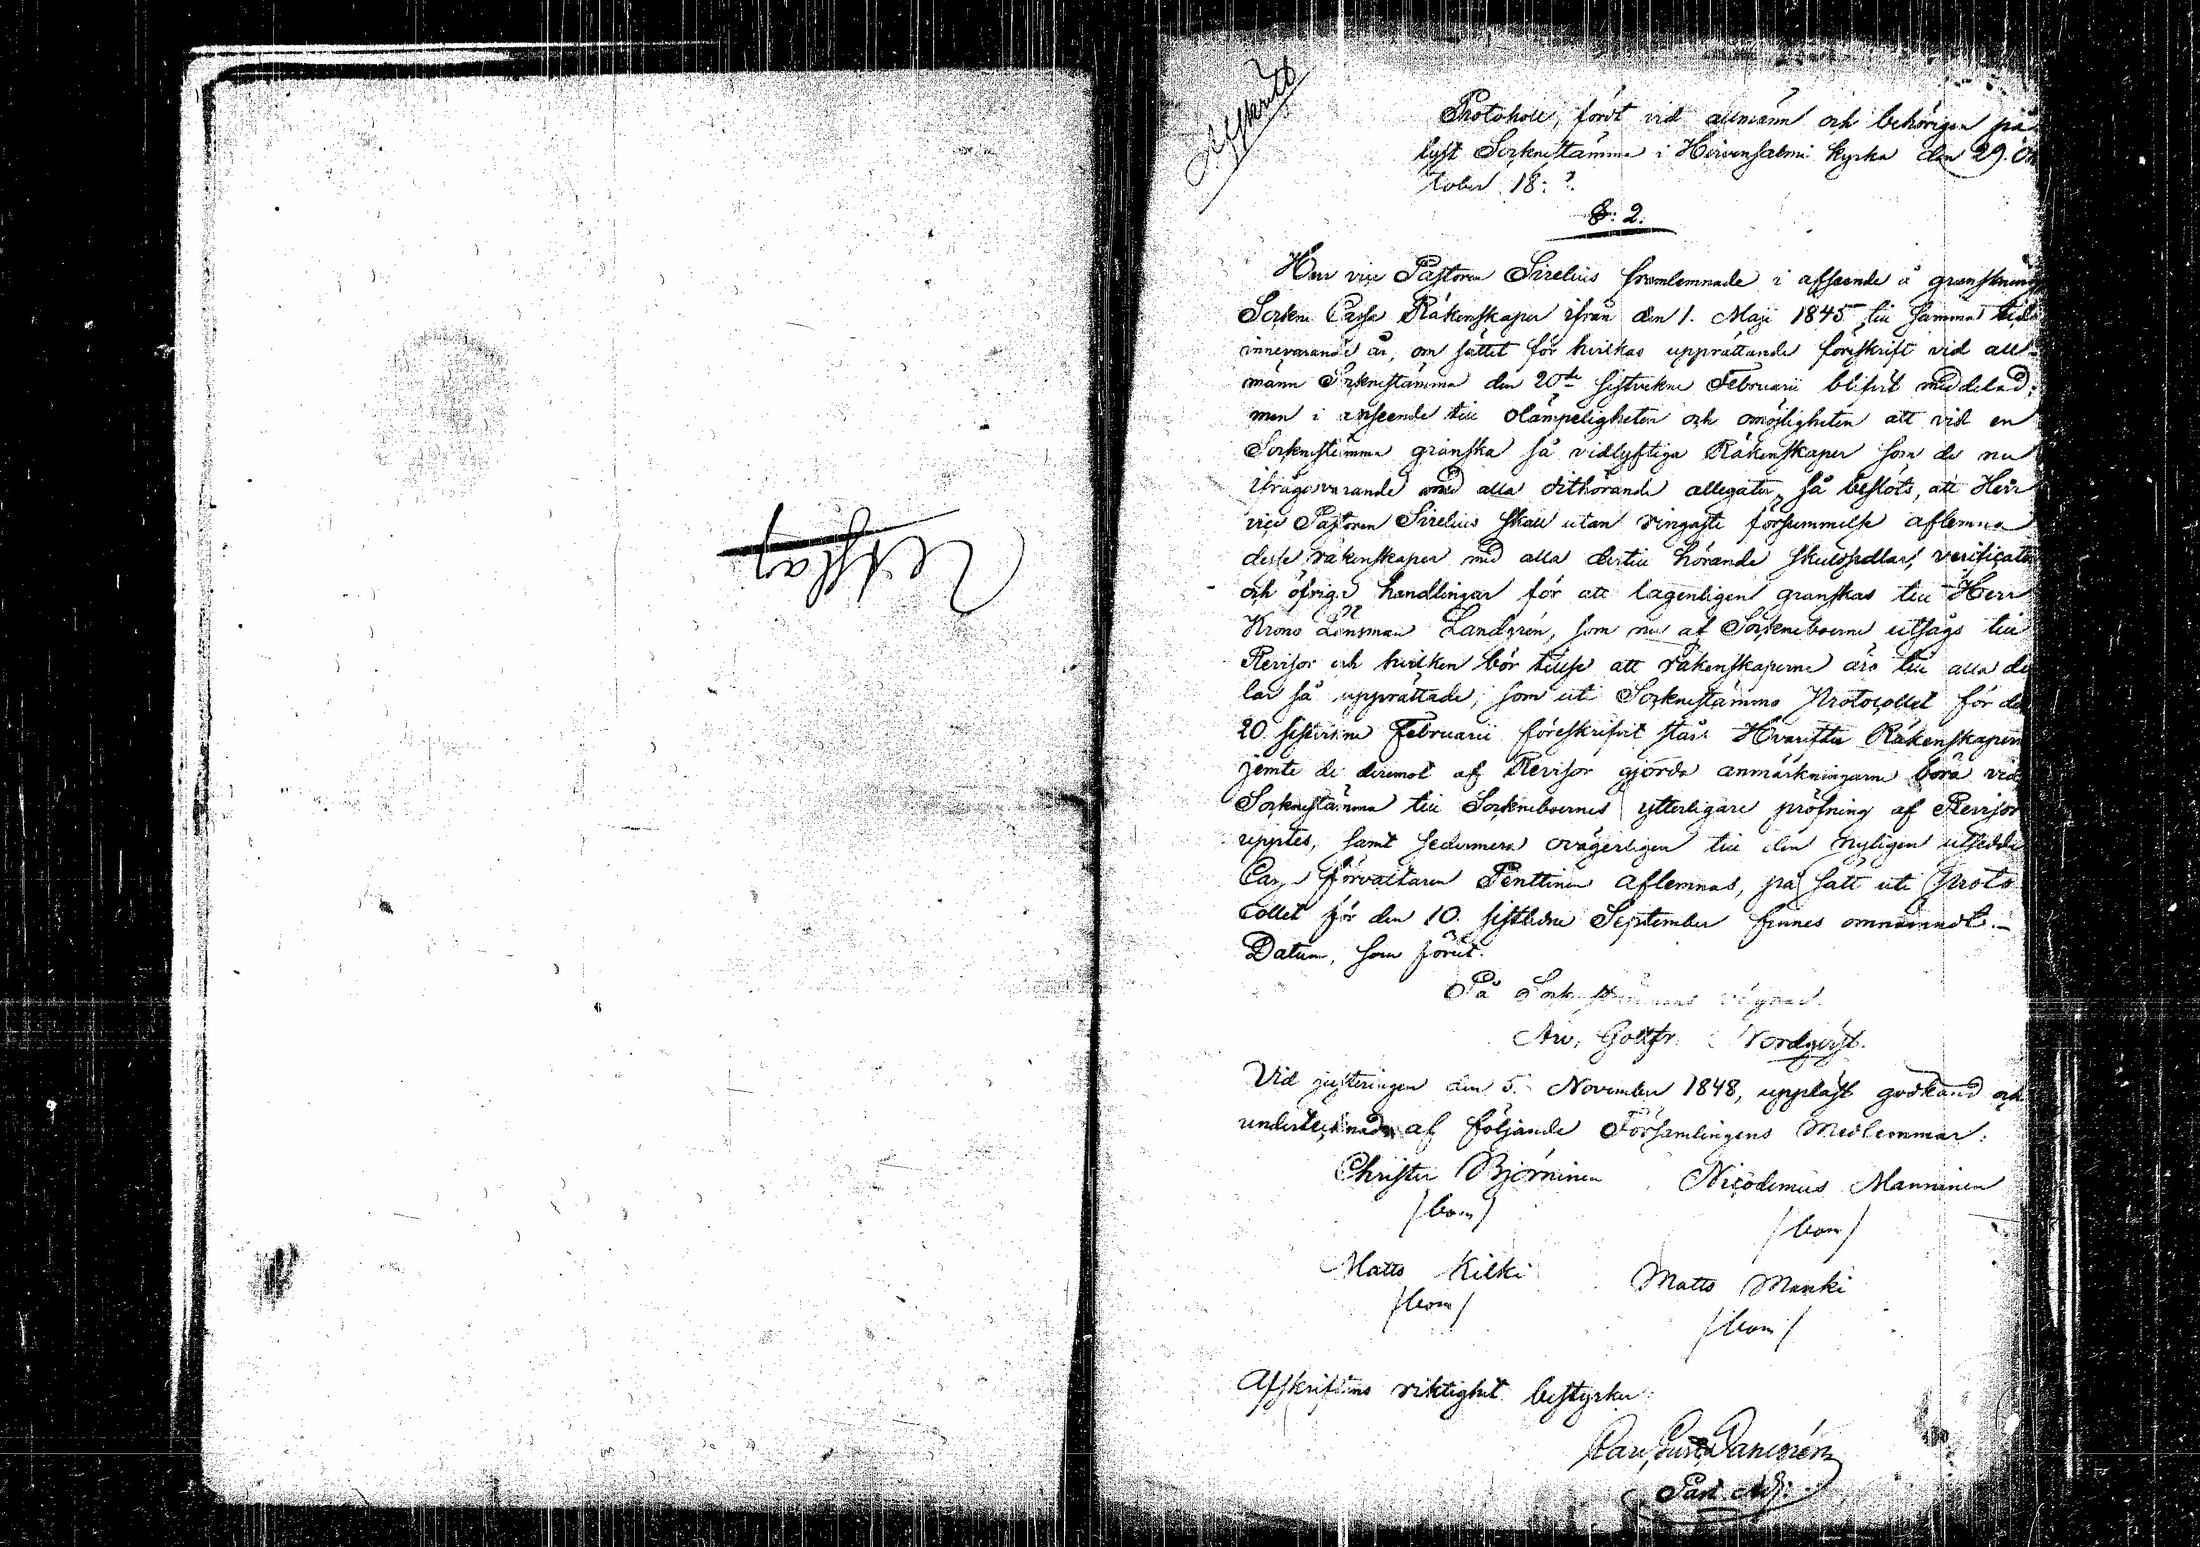 Afskrift
Protokoll, fördt vid allmänn och behörigen på
lyst Socknestämma i Hirvensalmi kyrka den 29. Ok
tober 18: ?
§: 2.
Herr vice Pastoren Sirelius framlemnade i afseende å granskning
Sockne Cassa Räkenskaper ifrån den 1. Maji 1845 till samma tid
innevarande år, om sättet för hvilkas upprättande föreskrift vid all-
männ Socknestämma den 20de sistvekne Februarii blifvit meddelad;
men i anseende till olämpeligheten och omöjligheten att vid en
Socknestämma granska så vidlyftiga Räkenskaper som de nu
ifrågavarande med alla dithörande allegater, så beslöts, att Herr
vice Pastoren Sirelius skall utan ringaste försummelse aflemna
desse räkenskaper med alla dertill hörande skuldsedlar, verificater
och öfrige handlingar för att lagenligen granskas till Herr
Krono Länsman Landgrén, som nu af Sockneboerne utsågs till
Revisor och hvilken bör tillse att räkenskaperne äro till alla de
lar så upprättade, som uti Socknestämmo Protocollet för den
20 sistvekne Februarii föreskrifvit står. Hvarefter Räkenskaperne
jemte de deremot af Revisor gjorda anmärkningarne böra vid
Socknestämma till Sockneboernes ytterligare pröfning af Revisor
upptes, samt sedermera ovägerligen till den nyligen utsedde
förvaltaren Penttinen aflemnas, på sätt uti Proto
collet för den 10. sistledne September finnes omnämndt.-
Datum, som förut.
På Sockenstämmans vägnar
Arv, Gottfr. Nordqvist.
Vid justeringen den 5. November 1848, uppläst godkänd och
undertecknad af följande Församlingens Medlemmar:
Christer Björninen Nicodemus Manninen
/bom/ /bom/
Matts Kilki Matts Manki
/bom/ /bom/
Afskriftens riktighet bestyrker:
Carl Gust
Past. Adj: